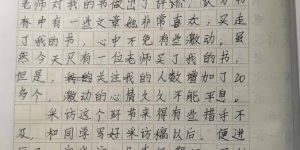 老师对我的书做出了评价，认为书
春中有一些文章她非常喜欢，买走
了我的书，心中不免有些激动。虽
然今天只有一位老师买了我的书，
但是，关注我的人数增加了20
多个，激动的心情久久不能平息。
采访这个环节来得有些措手不
及，和同学写好采访稿以后，便进